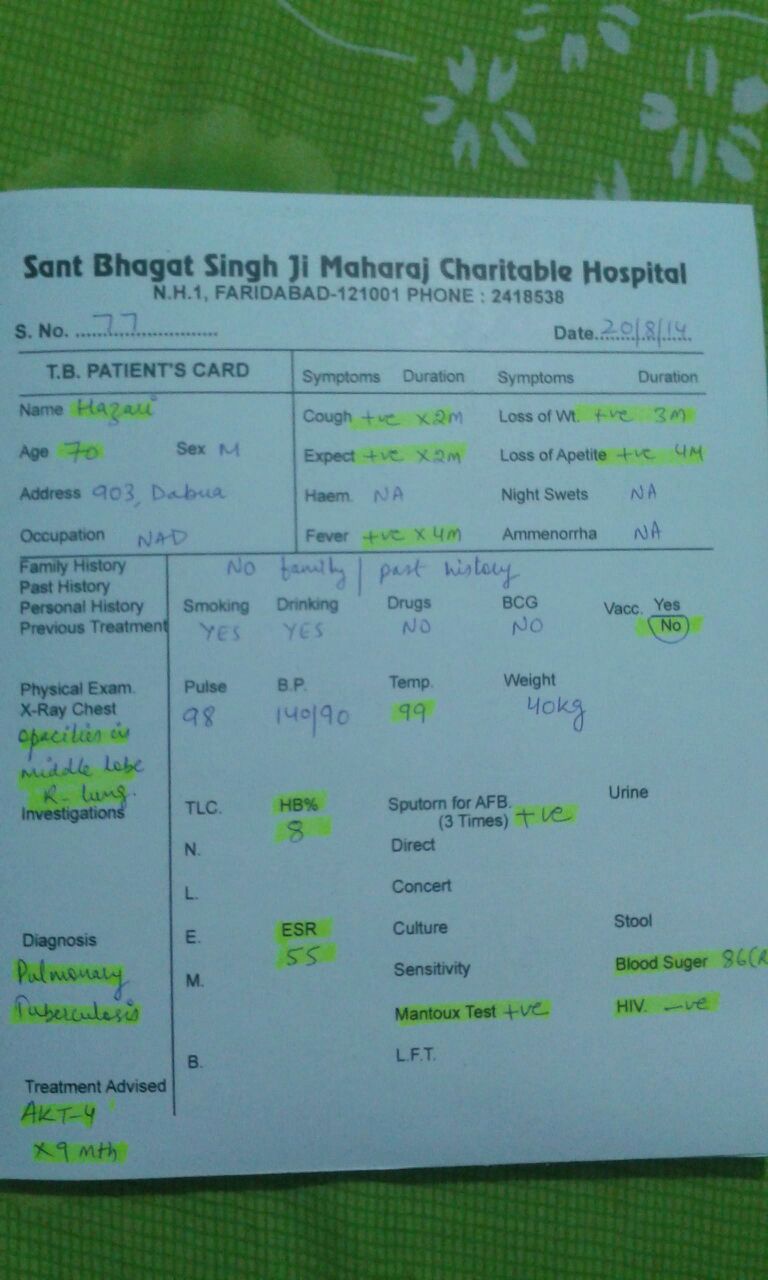 Sant Bhagat Singh Ji Maharaj Charitable Hospital
N.H.1, FARIDABAD-121001 PHONE : 2418538
S. No. 77 Date 20/8/14
T.B. PATIENT'S CARD Symptoms Duration Symptoms Duration
Name Hazari Cough +ve x2m Loss of Wt. +ve 3M
Age 70 Sex M Expect +ve x2m Loss of Apetite +ve 4M
Address 903, Dabua Haem. NA Night Swets NA
Occupation NAD Fever +ve x 4M Ammenorrha NA
Family History No family / past history
Past History
Personal History Smoking Drinking Drugs BCG Vacc. Yes
Previous Treatment YES YES NO NO No
Physical Exam. Pulse B.P. Temp. Weight
X-Ray Chest 98 140/90 99 40kg
opacities in
middle lobe
R- lung.
Investigations TLC. HB% Sputorn for AFB. Urine
8 (3 Times) +ve
N. Direct
L. Concert
Diagnosis E. ESR Culture Stool
Pulmonary 55 Sensitivity Blood Suger 86(R
Tuberculosis M. Mantoux Test +ve HIV. -ve
B. L.F.T.
Treatment Advised
AKT-4
x9 mth